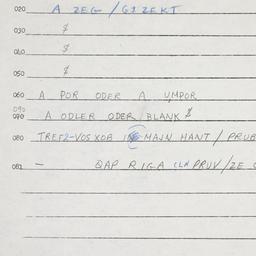 020 A ZEG / GIZEKT
030 $
040 $
050 $
060 A POR ODER A UMPOR
090
070 A ODLER ODER BLANK $
080 TREFZ-VOS XOB MAJN HANT / PRUB
081 — QAP RIGA CLM PRUV / ZE